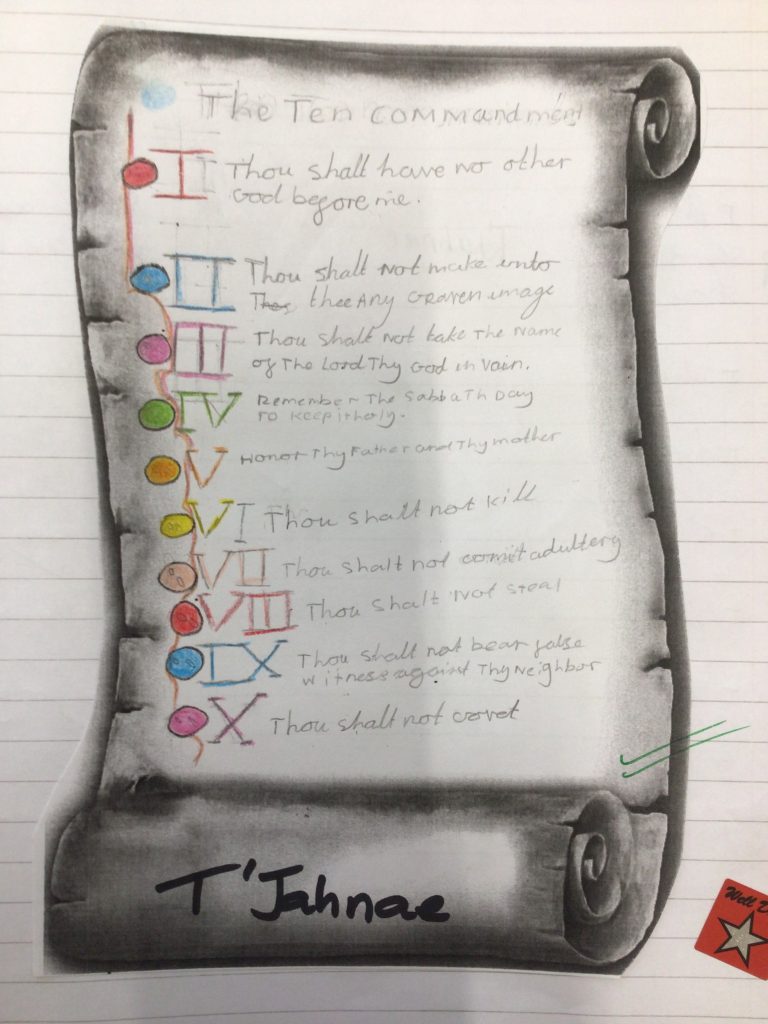 The Ten Commandment
I Thou shall have no other
God before me.
II Thou shalt not make unto
thee Any Graven image
III Thou shalt not take The Name
of The Lord Thy God in Vain.
IV Remember The Sabbath Day
To Keep it holy.
V Honor Thy Father and Thy mother
VI Thou shall not kill
VII Thou shalt not comit adultery
VIII Thou Shalt Not steal
IX Thou shall not bear false
witness against Thy Neighbor
X Thou shall not covet
T'Jahnae
Well